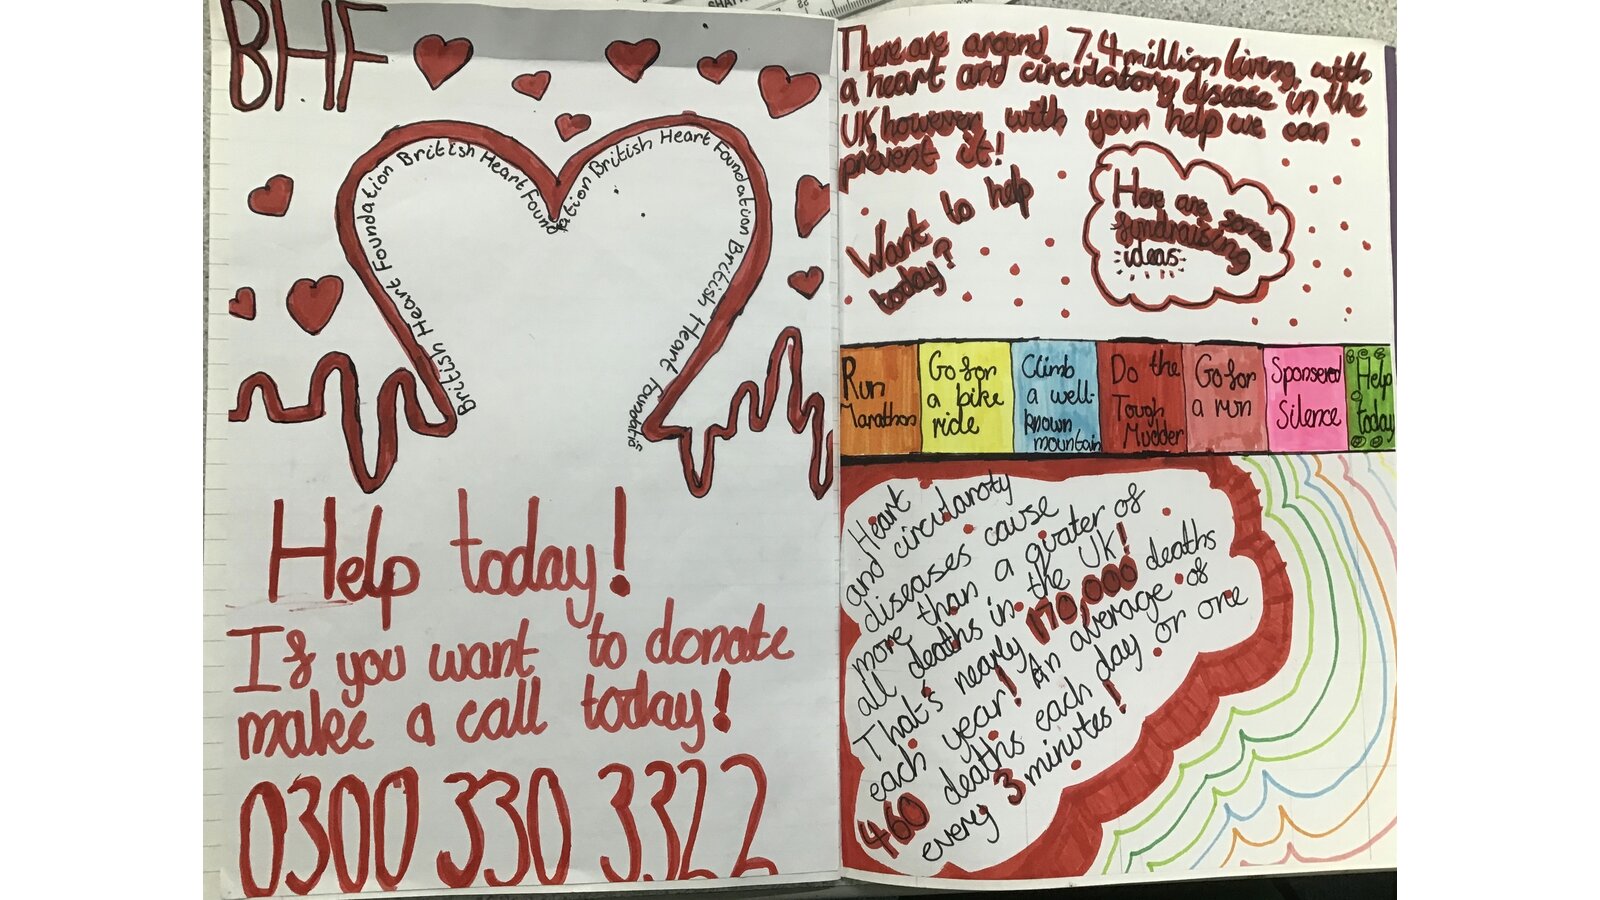 SHATT
BHF
British Heart Foundation British Heart Foundation British Heart Foundation British Heart Foundatio
Help today!
If you want to donate
make a call today!
0300 330 3322
There are around 7.4 million living with
a heart and circulatory disease in the
UK, however with your help we can
prevent it!
Want to help
today?
Here are some
fundraising
ideas
Run
Marathon
Go for
a bike
ride
Climb
a well-
known
mountain
Do the
Tough
Mudder
Go for
a run
Sponsered
Silence
Help
today
Heart
and circularoty
diseases cause
more than a quater of
all deaths in the UK!
That's nearly 170,000 deaths
each year! An average of
460 deaths each day or one
every 3 minutes!